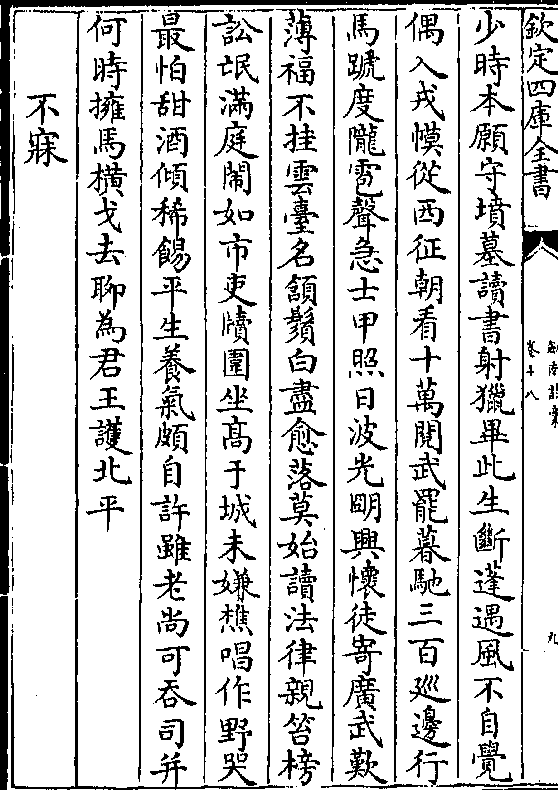 欽定四庫全書
劍南詩稾
卷十八
九
少時本願守墳墓讀書射獵畢此生斷蓬遇風不自覺
偶入戎幙從西征朝看十萬閱武罷暮馳三百廵邊行
馬蹏度隴雹聲急士甲照日波光明興懷徒寄廣武歎
薄福不挂雲臺名頷鬚白盡愈落莫始讀法律親笞榜
訟氓滿庭閙如市吏牘圍坐髙于城未嫌樵唱作野哭
最怕甜酒傾稀餳平生養氣頗自許雖老尚可吞司并
何時擁馬橫戈去聊為君王護北平
不寐